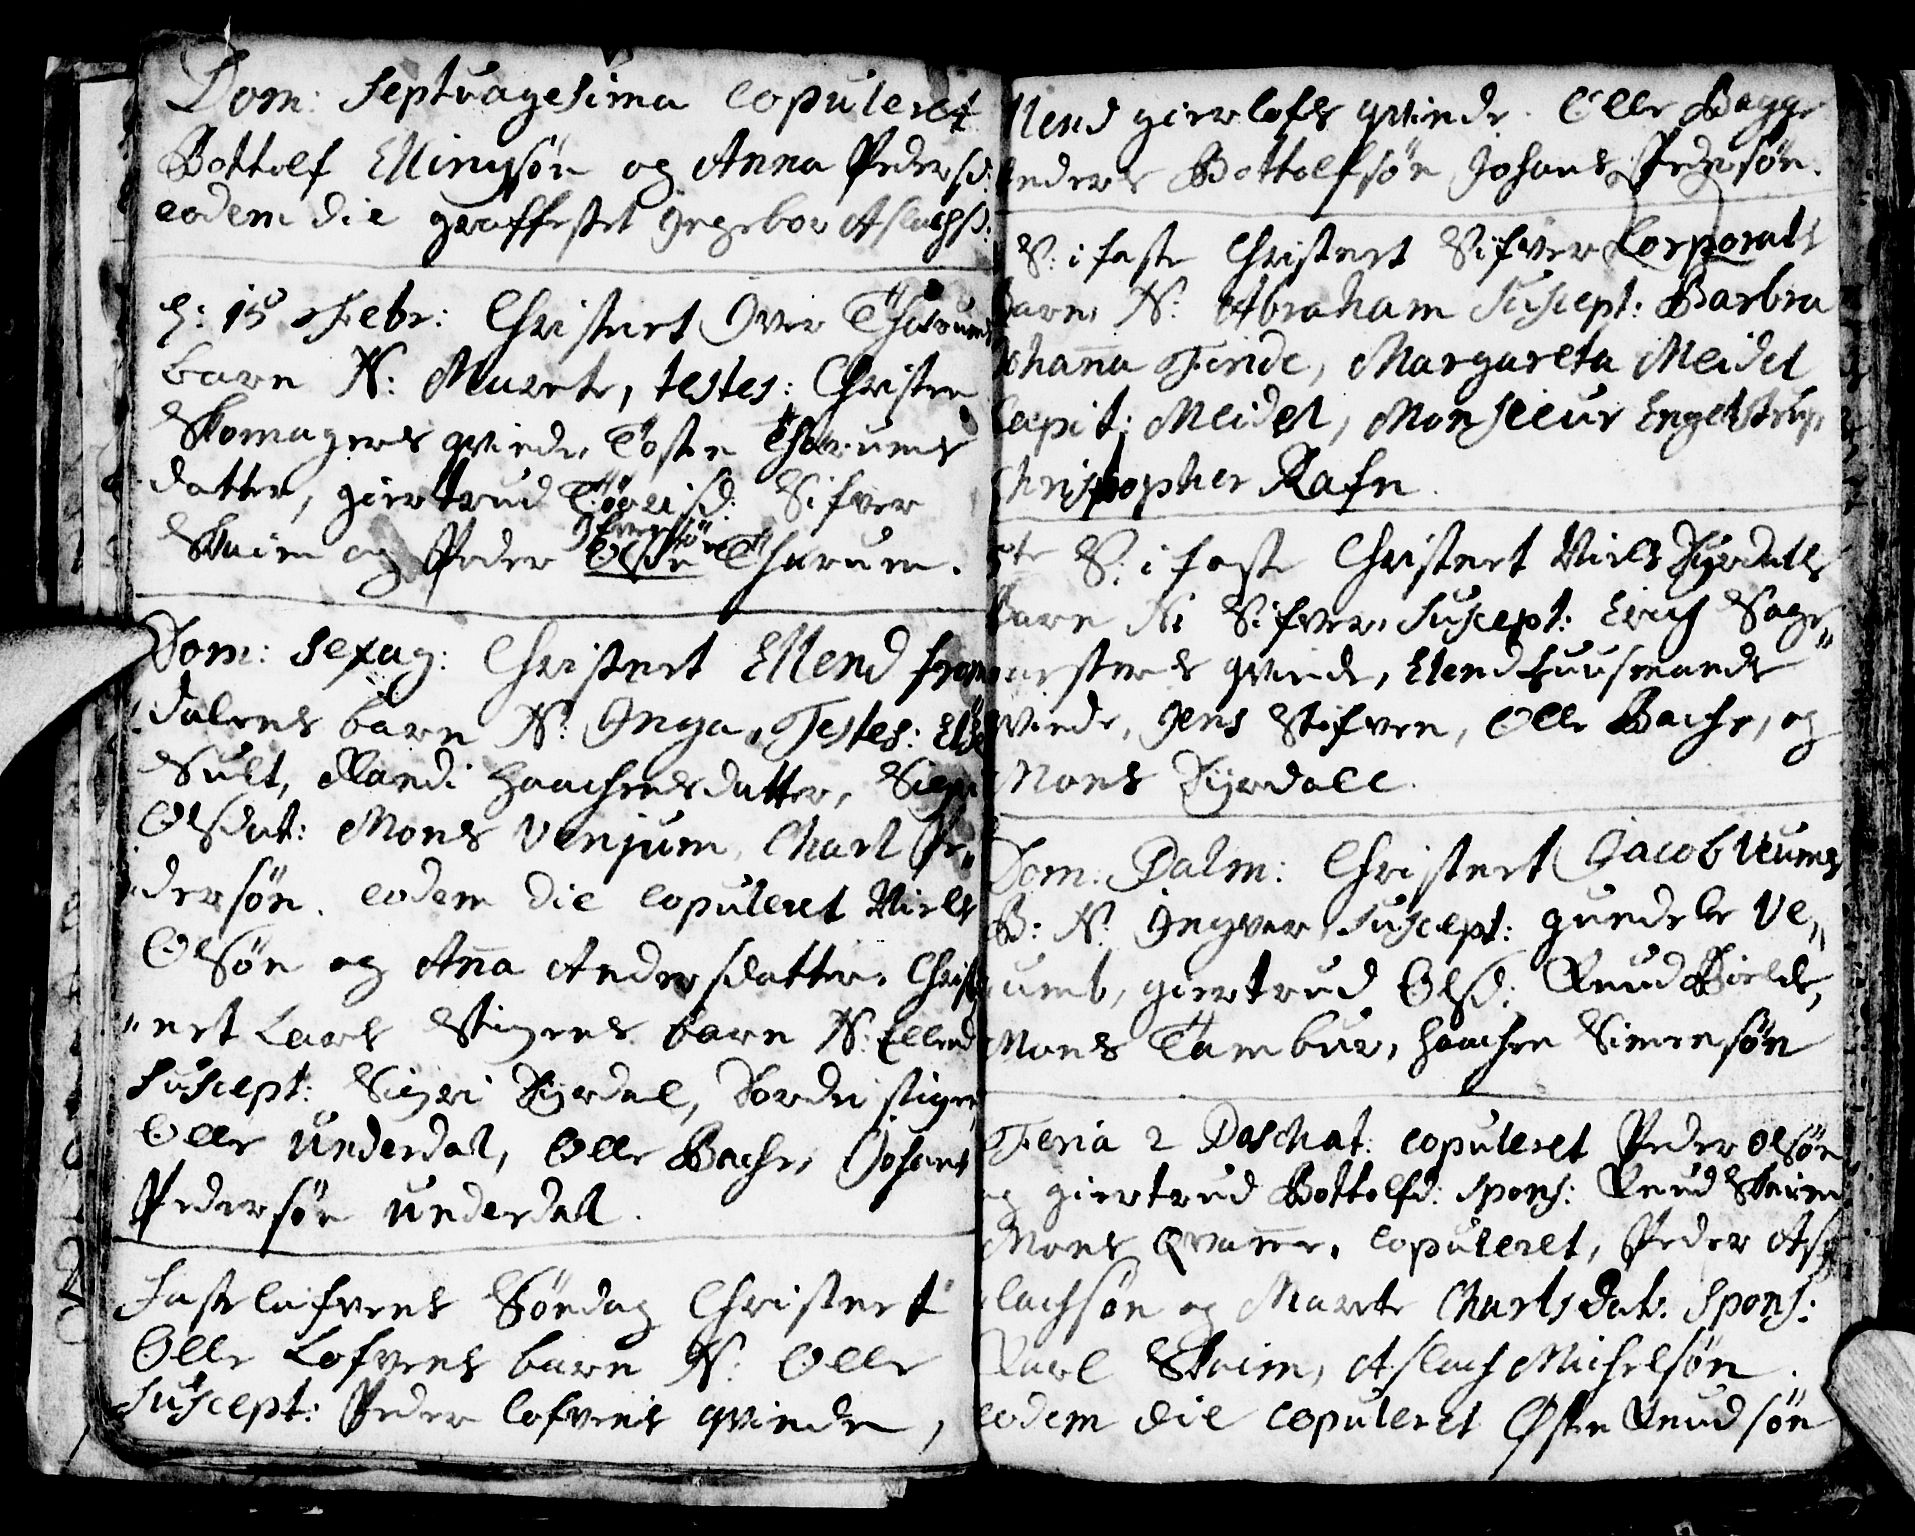 Dom: Septuagesima Copuleret
Bottolf Ellingsön og Anna Pedersd:
eodem die graffestet Ingebor Aslachsd:
d: 15 Febr: Christnet Iver Thorums
barn N: Marete, testes: Christen
Skomagers qvinde Töste Thorums
datter, giertrud Törrisd: Sifver
Skaim og Peder Ifversön Olsön Thorum.
Dom: Sexag: Christnet Ellend from
dalens barn N: Inga, Testes:
Sult, Randi Haachensdatter, Sigri
Olsdat: Mons Venjum, Charl Pe„
dersön. eodem die Copuleret Niels
Olsön og Anna Andersdatter. Christ„
„net Lars Stigens barn N: Ellend
Suscept: Sigri Dyrdal, Dorde stigen
Olle Underdal, Olle Bache, Johans
Pedersön Underdal.
Fastelafvens Söndag Christnet
Olle Lofvens barn N: Olle
Suscept: Peder Lofvens qvinde,
Ellend gierlofs qvinde. Olle Bagge
Anders Bottolfsön Johans Pedersön.
S: i faste Christnet Sifver Corporals
barn N: Abraham Suscept: Barbra
Johanna Finde, Margareta Meidel
Capit: Meidel, Monsieur Engelstrup,
Christopher Rafn.
5te S: i faste Christnet Niels Dyrdals
barn N: Sifver, Suscept: Erich Sage„
mesters qvinde, Elend Huusmands
qvinde, Jens Stifven, Olle Bache, og
Mons Dyrdall.
Dom: Palm: Christnet Jacob Veums
B: N: Ingver Suscept: gunde Ve„
umb, giertrud Olsd: Knud Bielde,
Mons Tambur, Haachen Simensön
Feria 2 Paschat: Copuleret Peder Olsön
og giertrud Bottolfd: Spons: Knud Skaim
Mons Qvamme. Copuleret, Peder As„
lachsön og Marete Charlsdat: Spons:
Karl Skaim, Aslach Michelsön.
eodem die Copuleret Östen Knudsön